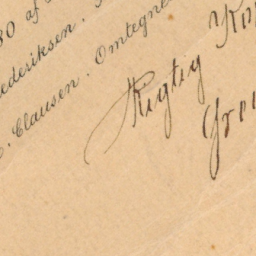 30 af
ederiksen.
Clausen. Omtegne
Rigtig Ko
Gre